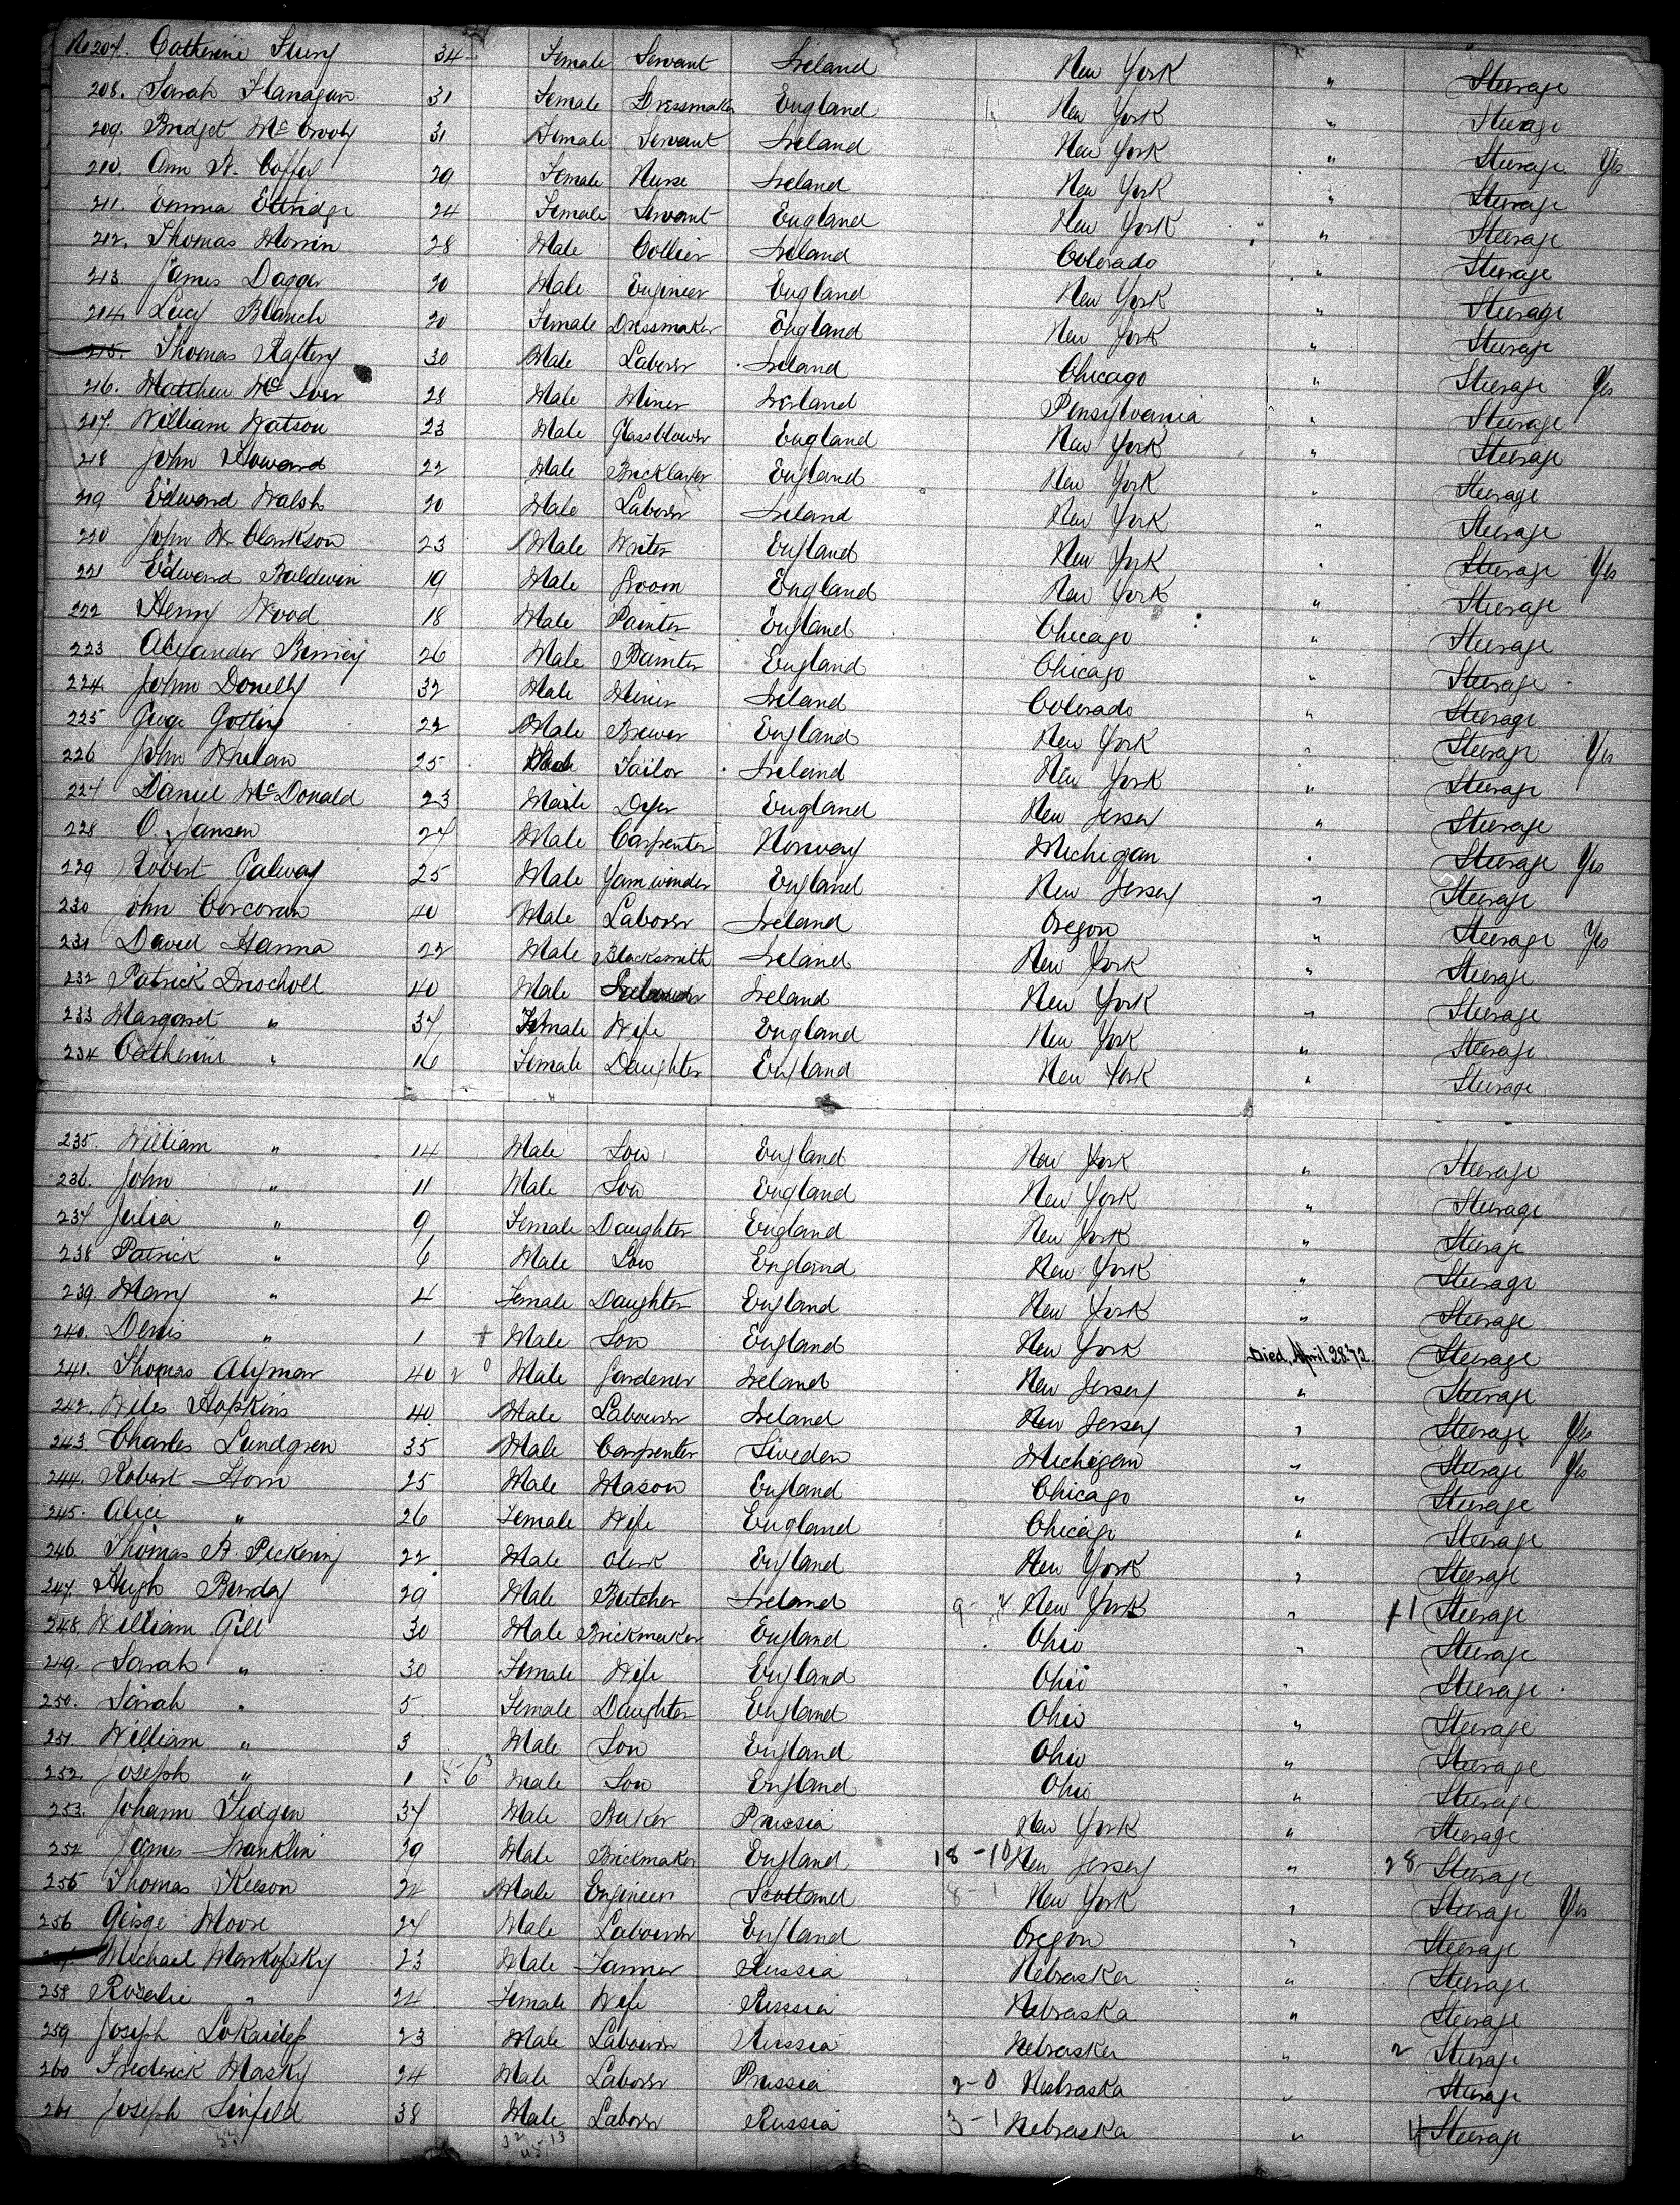 No 207. Catherine 34 Female Servant Ireland New York " Steerage
208. Sarah Flanagan 31 Female Dressmaker England New York " Steerage
209. Bridget 31 Female Servant Ireland New York " Steerage Yes
210. Ann Coffey 29 Female Nurse Ireland New York " Steerage
211. Emma Ettridge 24 Female Servant England New York " Steerage
212. Thomas Morrin 28 Male Collier Ireland Colorado " Steerage
213. James Dagger 20 Male Engineer England New York " Steerage
214. Lucy Blanch 20 Female Dressmaker England New York " Steerage
215. Thomas Raftery 30 Male Laborer Ireland Chicago " Steerage Yes
216. Matthew Mc Iver 28 Male Miner Ireland Pensylvania " Steerage
217. William Watson 23 Male Glassblower England New York " Steerage
218 John Howard 22 Male Bricklayer England New York " Steerage
219 Edward Walsh 20 Male Laborer Ireland New York " Steerage
220 John W. Clarkson 23 Male Writer England New York " Steerage Yes
221 Edward Baldwin 19 Male Groom England New York " Steerage
222 Henry Wood 18 Male Painter England Chicago " Steerage
223 Alexander Birniey 26 Male Painter England Chicago " Steerage
224 John Donelly 32 Male Miner Ireland Colorado " Steerage
225 George Gotting 22 Male Brewer England New York " Steerage Yes
226 John Whelan 25 Male Tailor Ireland New York " Steerage
227 Daniel McDonald 23 Male Dyer England New Jersey " Steerage
228 O. Jansen 27 Male Carpenter Norway Michigan " Steerage Yes
229 Robert Galway 25 Male Yarn winder England New Jersey " Steerage
230 John Corcoran 40 Male Laborer Ireland Oregon " Steerage Yes
231 David Hanna 22 Male Blacksmith Ireland New York " Steerage
232 Patrick Drischoll 40 Male Ireland New York " Steerage
233 Margaret " 37 Female Wife England New York " Steerage
234 Catherine " 16 Female Daughter England New York " Steerage
235. William " 14 Male Son England New York " Steerage
236. John " 11 Male Son England New York " Steerage
237 Julia " 9 Female Daughter England New York " Steerage
238 Patrick " 6 Male Son England New York " Steerage
239. Mary " 4 Female Daughter England New York " Steerage
240. Denis " 1 + Male Son England New York Died, April 28. 72. Steerage
241. Thomas Alymar 40 Male Gardener Ireland New Jersey " Steerage
242. Hopkins 40 Male Labourer Ireland New Jersey " Steerage Yes
243. Charles Lundgren 35 Male Carpenter Sweden Michigan " Steerage Yes
244. Robert Horn 25 Male Mason England Chicago " Steerage
245. Alice " 26 Female Wife England Chicago " Steerage
246. Thomas A. Pickering 22 Male Clerk England New York " Steerage
247. Hugh Bunday 29 Male Butcher Ireland New York " Steerage
248. William Gill 30 Male Brickmaker England Ohio " Steerage
249. Sarah " 30 Female Wife England Ohio " Steerage
250. Sarah " 5 Female Daughter England Ohio " Steerage
251. William " 3 Male Son England Ohio " Steerage
252. Joseph " 1 Male Son England Ohio " Steerage
253. Johann 37 Male Baker Prussia New York " Steerage
254 James Franklin 29 Male Brickmaker England 18-10 New Jersey " 28 Steerage
255 Thomas Keeson 22 Male Engineer Scotland 8-1 New York " Steerage Yes
256 George Moore 27 Male Labourer England Oregon " Steerage
Michael Markofsky 23 Male Farmer Russia Nebraska " Steerage
258 Rosalie " 24 Female Wife Russia Nebraska " Steerage
259 Joseph 23 Male Labourer Russia Nebraska " 2 Steerage
260 Frederick Masky 24 Male Laborer Prussia 2-0 Nebraska " Steerage
261 Joseph Sinfeld 38 Male Laborer Russia 3-1 Nebraska " 4 Steerage